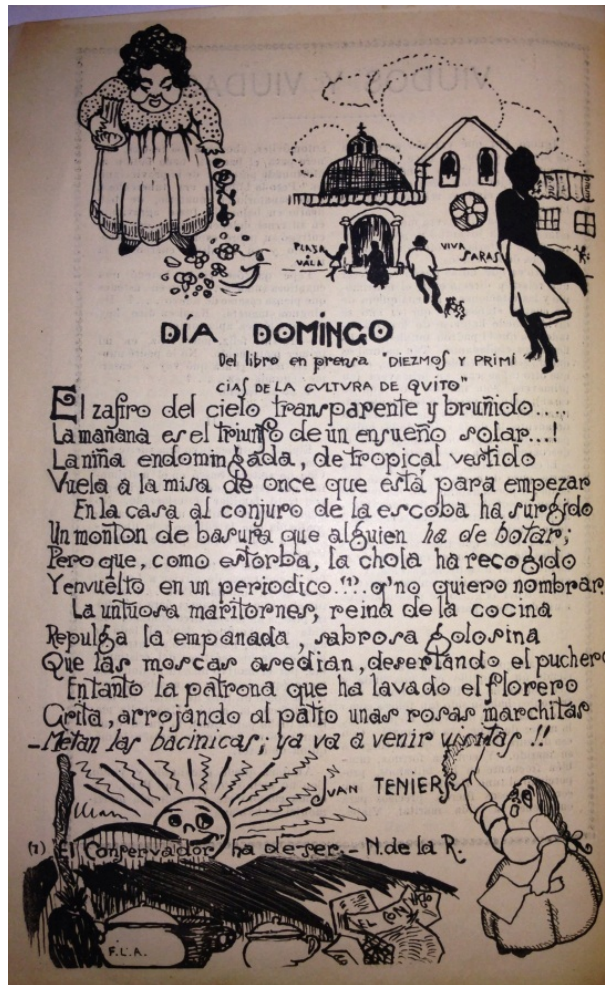 PLAZA
VALA
VIVA
FARAS
DÍA DOMINGO
Del libro en prensa "DIEZMOS Y PRIMI
CIAS DE LA CVLTVRA DE QVITO"
El zafiro del cielo transparente y bruñido....
La mañana es el triunfo de un ensueño solar...!
La niña endomingada, de tropical vestido
Vuela a la misa de once que está para empezar
En la casa al conjuro de la escoba ha surgido
Un montón de basura que alguien ha de botar;
Pero que, como estorba, la chola ha recogido
Y envuelto en un periodico.(1). q'no quiero nombrar.
La untuosa maritornes, reina de la cocina
Repulga la empanada, sabrosa golosina
Que las moscas asedian, desertando el puchero
Entanto la patrona que ha lavado el florero
Grita, arrojando al patio unas rosas marchitas
-Metan las bacinicas; ya va a venir visitas !!
JVAN TENIERS
(1) "El Conservador" ha de-ser.- N. de la R.
EL CON
F.L.A.